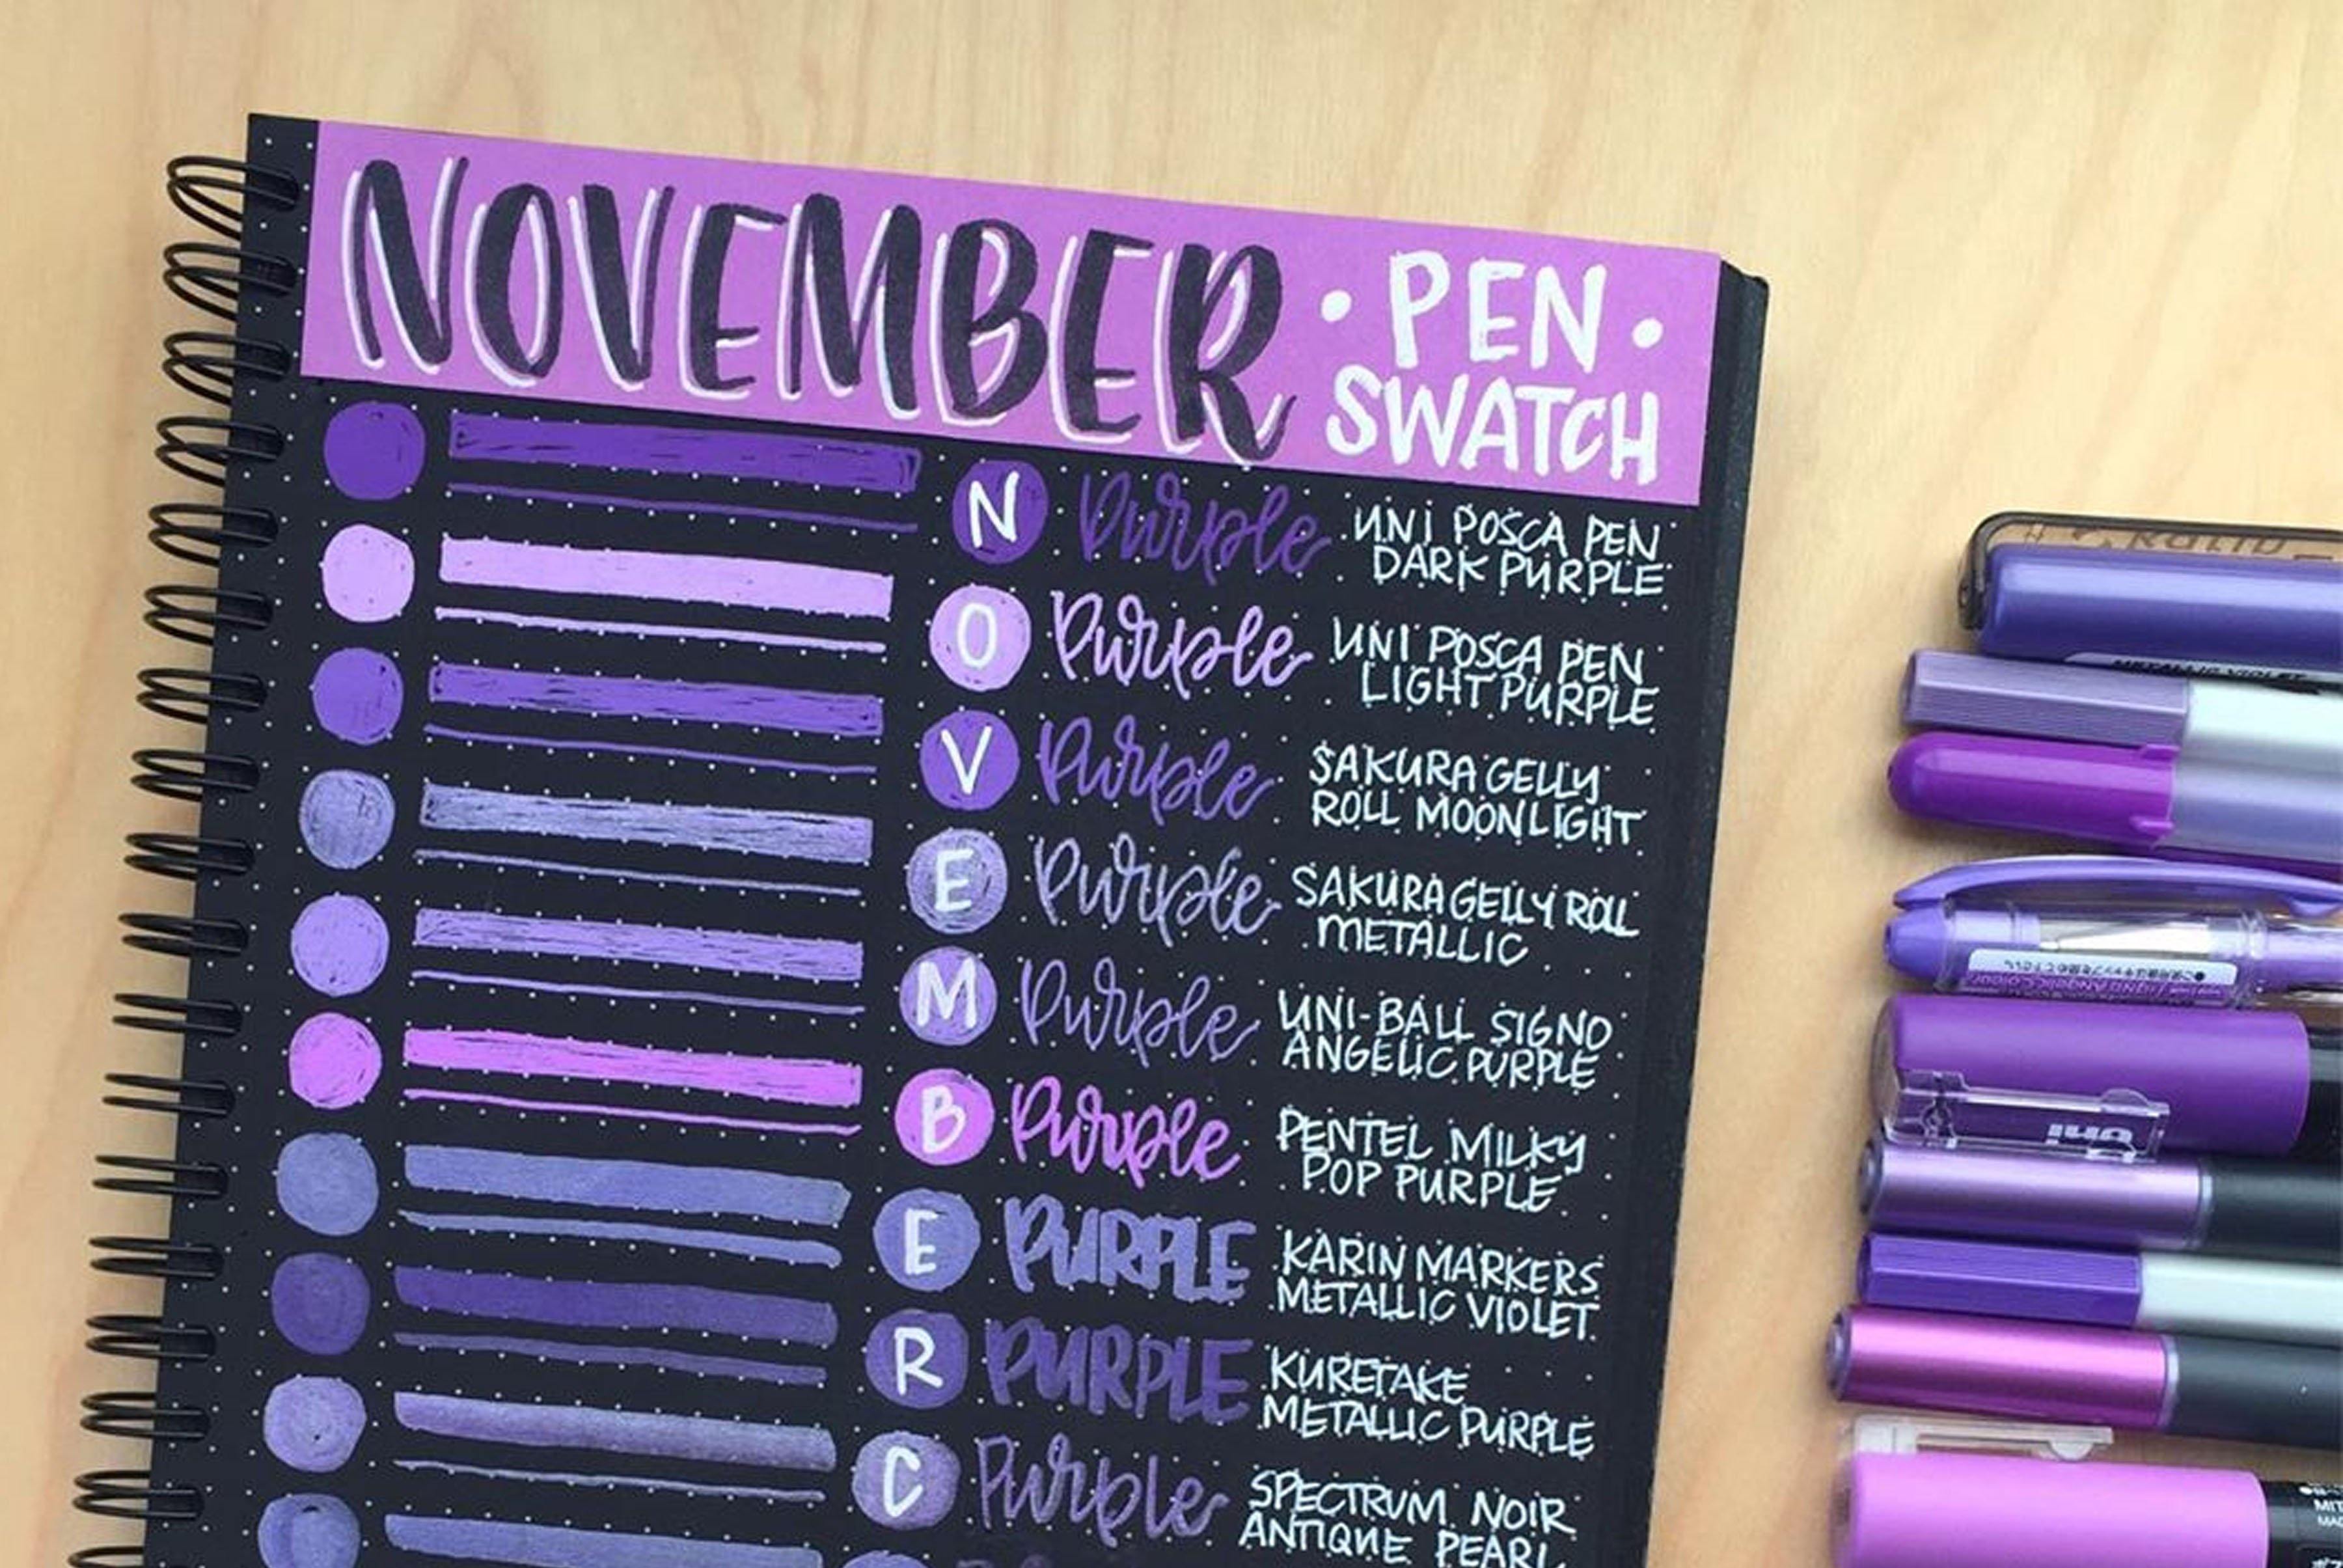 NOVEMBER
• PEN •
SWATCH
N Purple UNI POSCA PEN
DARK PURPLE
O Purple UNI POSCA PEN
LIGHT PURPLE
V Purple SAKURA GELLY
ROLL MOONLIGHT
E Purple SAKURA GELLY ROLL
METALLIC
M Purple UNI-BALL SIGNO
ANGELIC PURPLE
B Purple PENTEL MILKY
POP PURPLE
E PURPLE KARIN MARKERS
METALLIC VIOLET
R PURPLE KURETAKE
METALLIC PURPLE
C Purple SPECTRUM NOIR
ANTIQUE PEARL
METALLIC VIOLET
uni